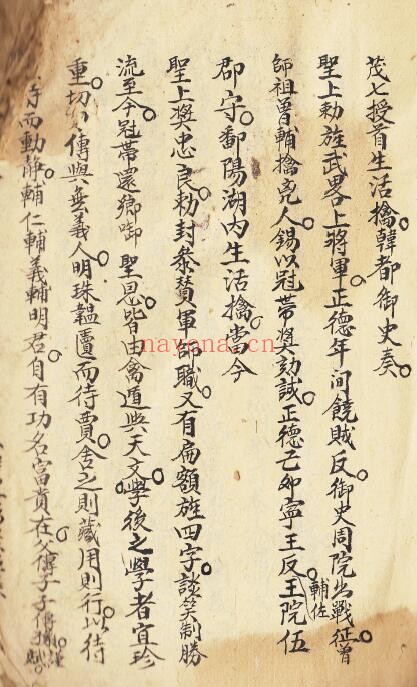 茂七授首生活擒韓都御史奏
聖上勅旌武畧上將軍正德年间饒賊反御史周院出戰征曽
師祖曽輔擒亮人錫以冠帶奬効誠正德己卯寧王反王院伍
輔佐
郡守鄱陽湖内生活擒當今
聖上奬忠良勅封叅賛軍師職又有扁額旌四字談笑制勝
流至今冠帶還鄉啣聖恩皆由禽遁與天文學後之學者宜珍
重切勿傳與無義人明珠韞匵而待賈舍之則藏用則行以待
時而動静輔仁輔義輔明君自有功名富貴在父傳子子傳孫
謹
nayona.cn